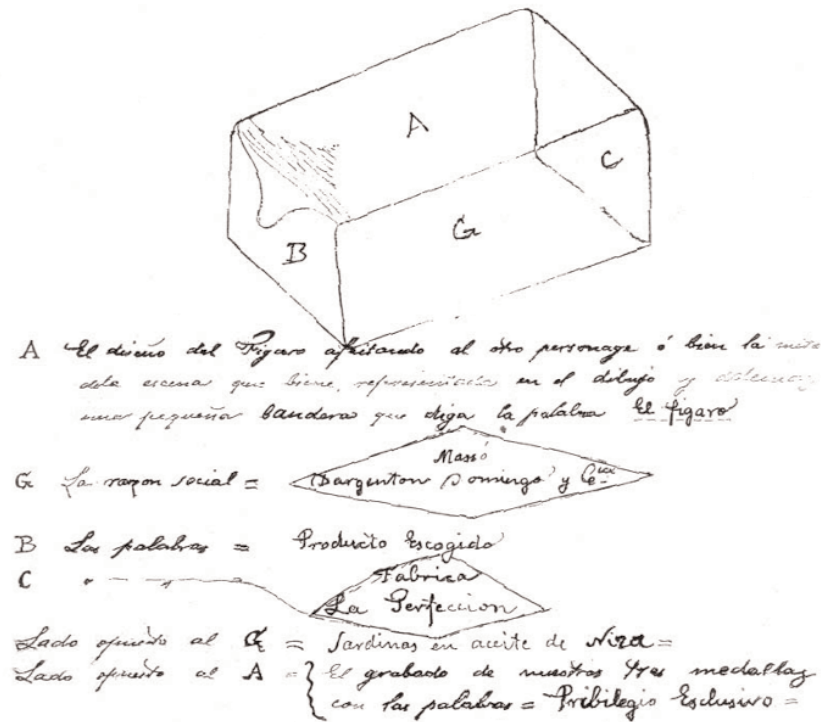 A
C
G
B
A El diseño del Figaro afeitando al otro personage ó bien la
dela escena que biene representada en el dibujo y
una pequeña bandera que diga la palabra El figaro
Massó
G La razon social = Dargenton Domingo y Cª
B Las palabras = Producto Escogido
C Fabrica
La Perfeccion
Lado opuesto al G = Sardinas en aceite de Niza =
Lado opuesto al A = El grabado de nuestras tres medallas
con las palabras = Pribilegio Esclusivo =